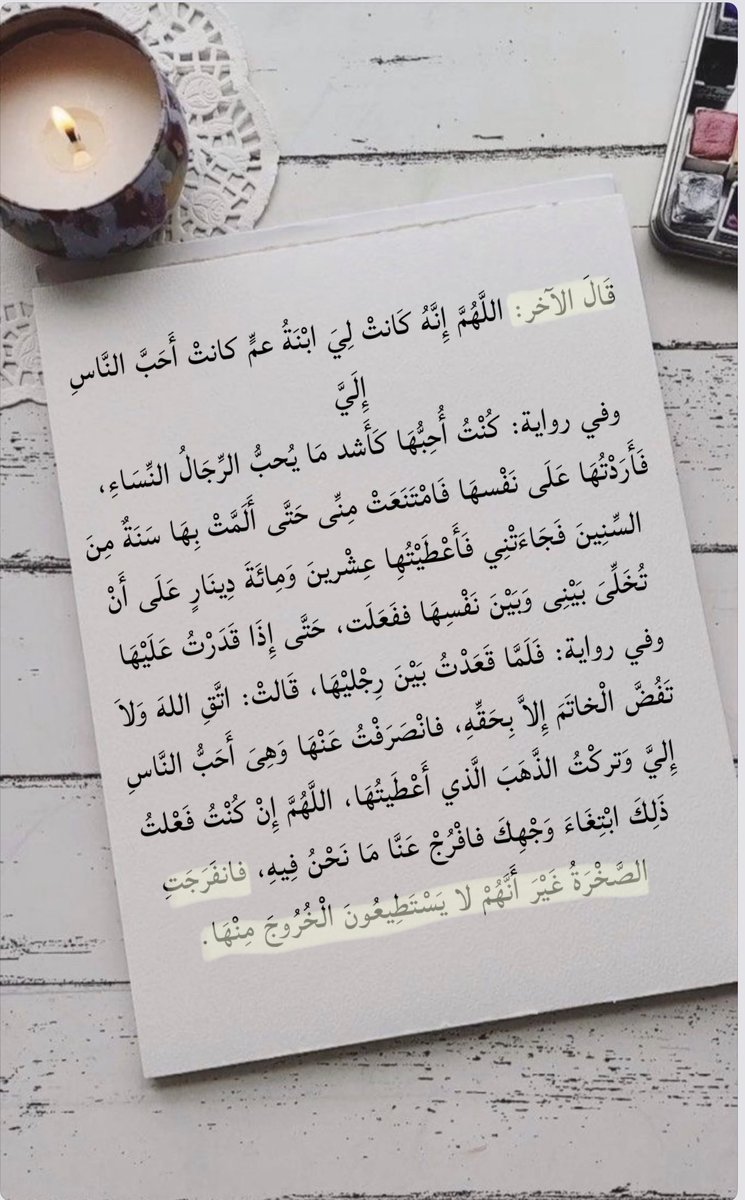 قَالَ الآخر: اللَّهُمَّ إِنَّهُ كَانتْ لِيَ ابْنَةُ عمٍّ كانتْ أَحَبَّ النَّاسِ
إِلَيَّ
وفي رواية: كُنْتُ أُحِبُّهَا كَأَشد مَا يُحبُّ الرِّجَالُ النِّسَاءِ،
فَأَرَدْتُهَا عَلَى نَفْسهَا فَامْتَنَعَتْ مِنِّى حَتَّى أَلَمَّتْ بِهَا سَنَةٌ مِنَ
السِّنِينَ فَجَاءَتْنِي فَأَعْطَيْتُهِا عِشْرينَ وَمِائَةَ دِينَارٍ عَلَى أَنْ
تُخَلِّىَ بَيْنِى وَبَيْنَ نَفْسِهَا ففَعَلَت، حَتَّى إِذَا قَدَرْتُ عَلَيْهَا
وفي رواية: فَلَمَّا قَعَدْتُ بَيْنَ رِجْليْهَا، قَالتْ: اتَّقِ اللهَ وَلاَ
تَفُضَّ الْخاتَمَ إِلاَّ بِحَقِّهِ، فانْصَرَفْتُ عَنْهَا وَهِىَ أَحَبُّ النَّاسِ
إِليَّ وَتركْتُ الذَّهَبَ الَّذي أَعْطَيتُهَا، اللَّهُمَّ إِنْ كُنْتُ فَعْلتُ
ذَلِكَ ابْتِغَاءَ وَجْهِكَ فافْرُجْ عَنَّا مَا نَحْنُ فِيهِ، فانفَرَجَتِ
الصَّخْرَةُ غَيْرَ أَنَّهُمْ لا يَسْتَطِيعُونَ الْخُرُوجَ مِنْهَا.